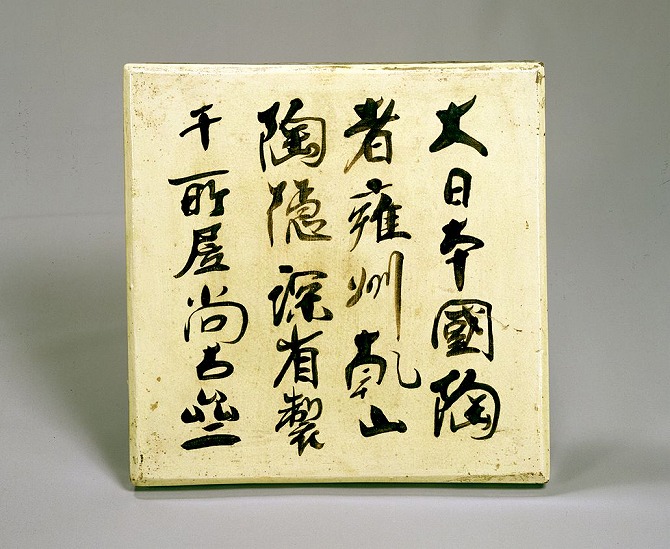 大日本國陶
者雍州乾山
陶隠深省製
于所屋尚古